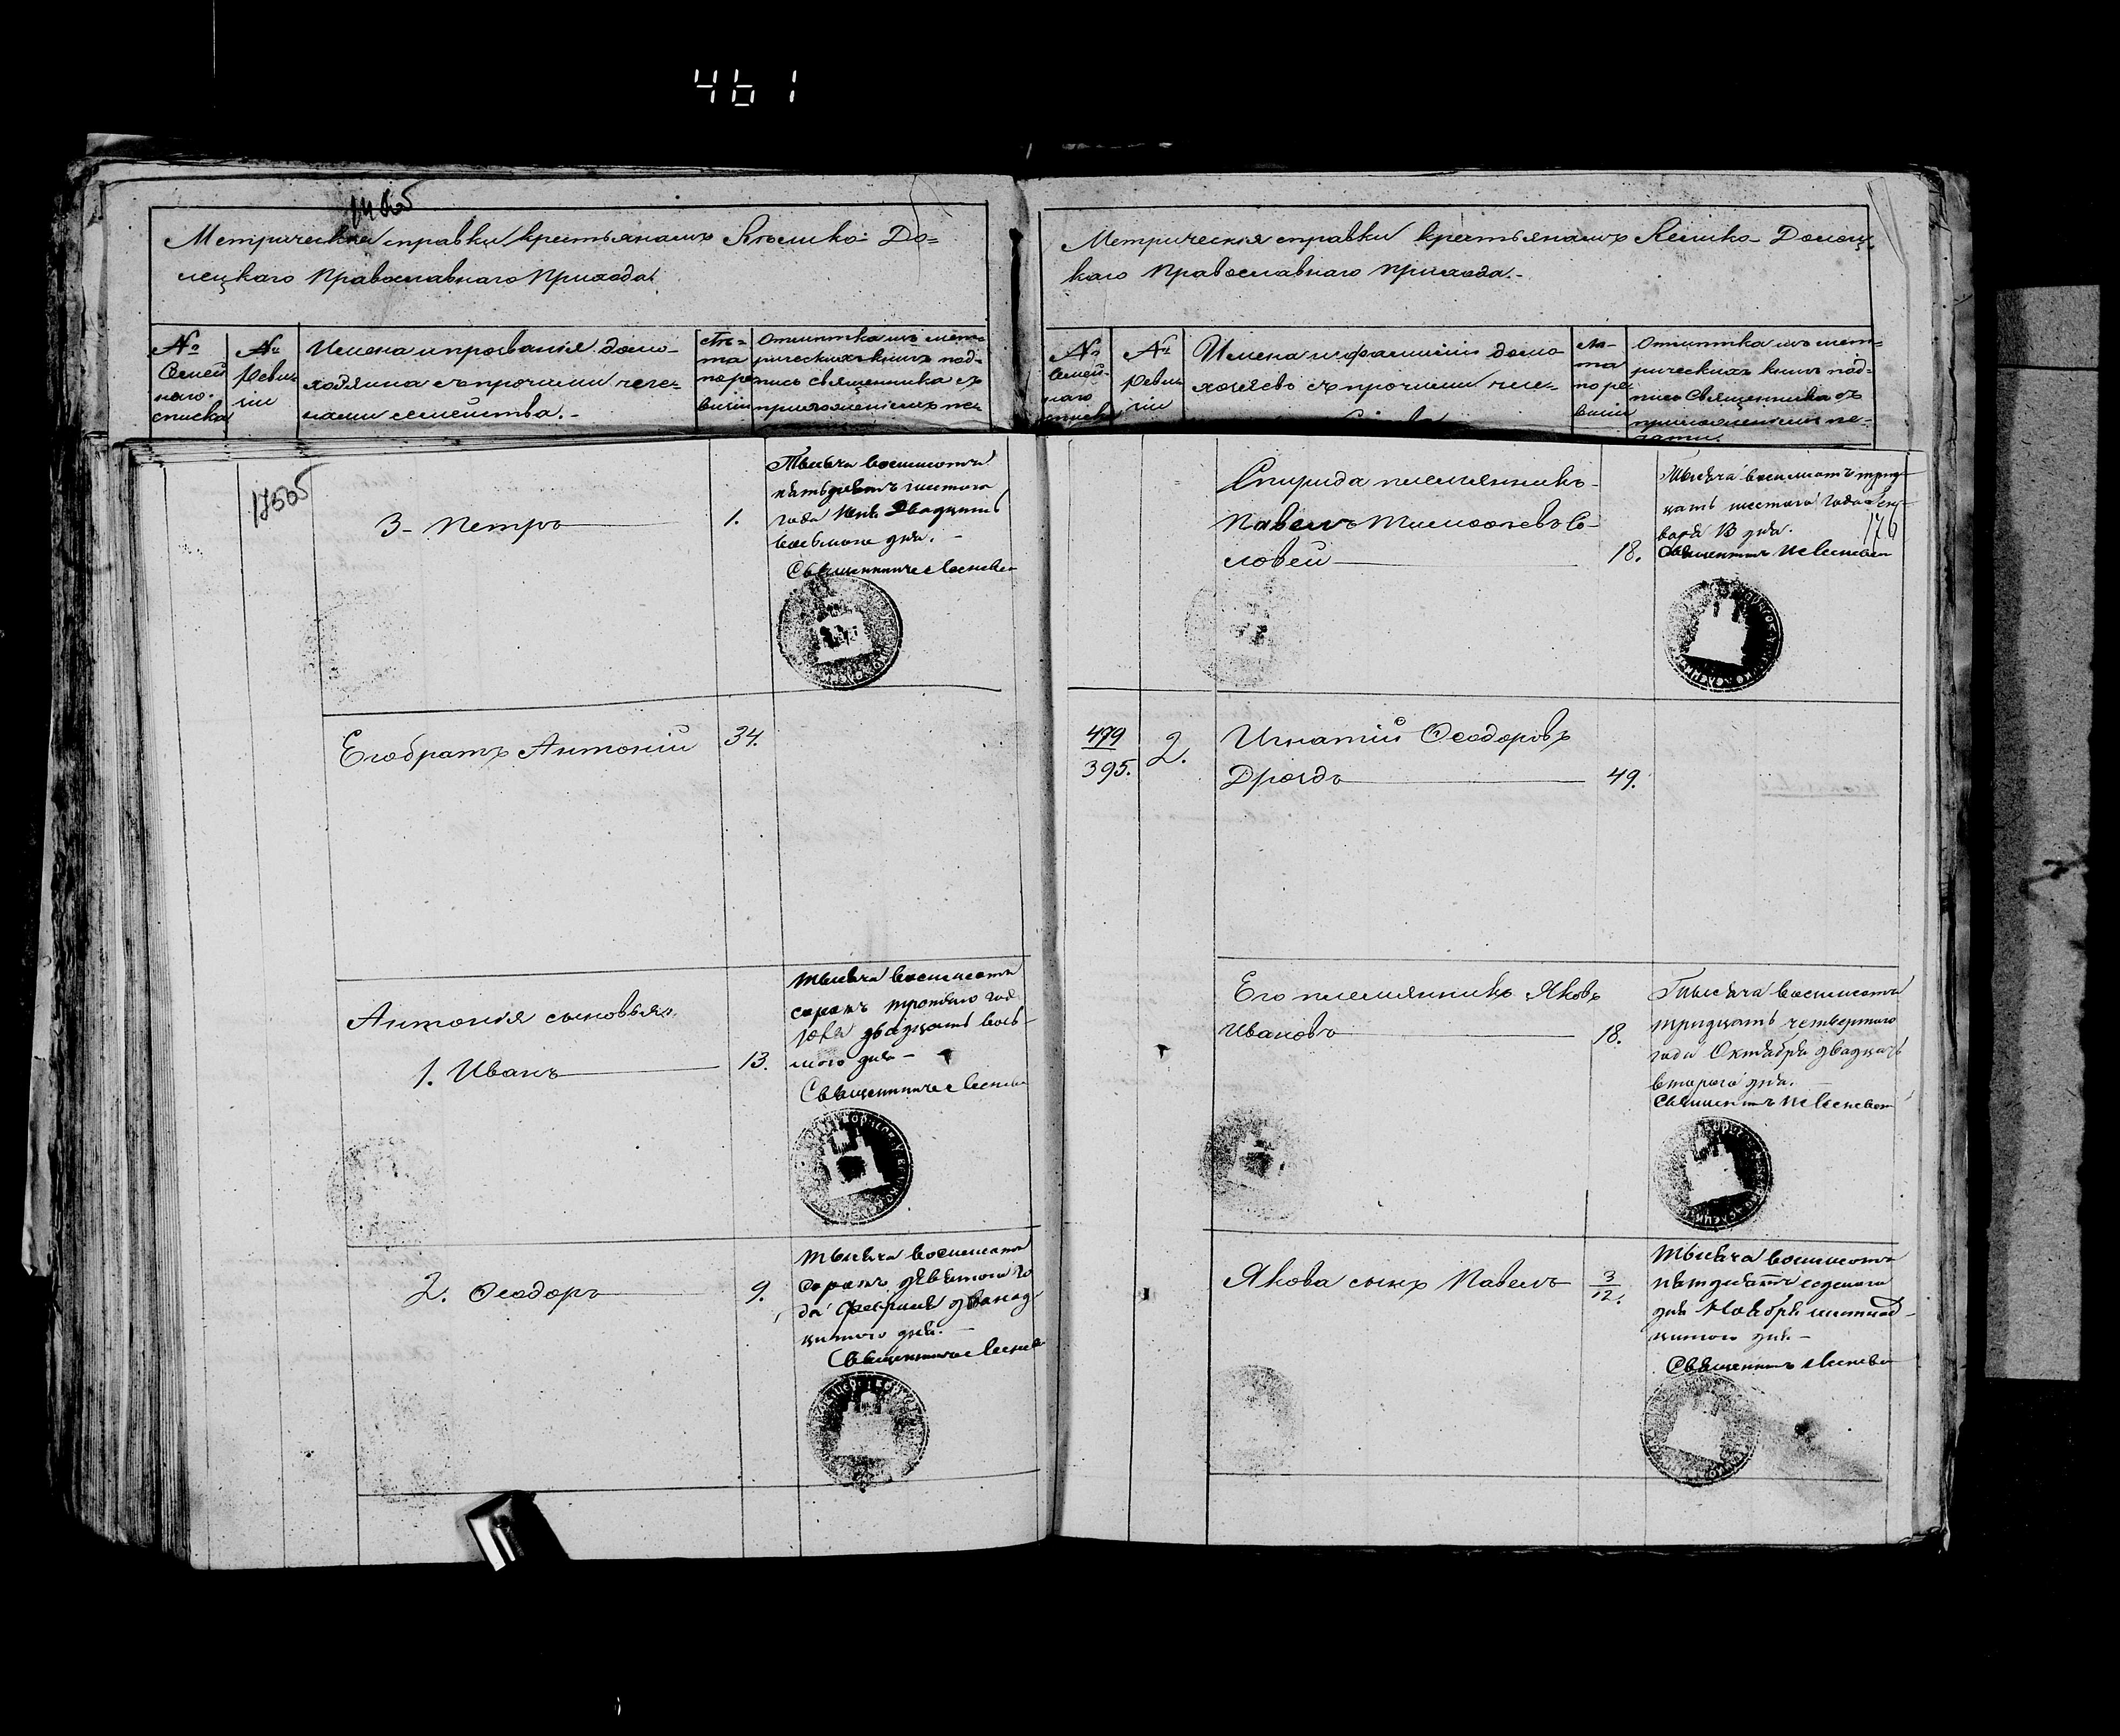 461
Метрическія справки крестьянамъ Велико-До=
лецкаго Православнаго Прихода.
№
Семей
наго
списка
№
Ревиз
іи
Имена и прозванія домо-
хозяина съ прочими чле-
нами семейства.-
лѣ=
та
по ре
визіи
Отмѣтка изъ метри
рическихъ книгъ под-
пись священника съ
приложеніемъ пе
3- Петръ
1.
Тысяча восемьсотъ
пятьдесятъ шестого
года двадцать
восьмого дня. -
Священникъ
Его братъ Антоній
34.
Антонія сыновья:
1. Иванъ
13.
тысяча восемьсотъ
сорокъ третьяго год
двадцать вось-
мого дня -
Священникъ
2. Ѳеодоръ
9.
тысяча восемьсотъ
сорокъ девятого го
да Февраля двенад
цатого дня. -
Священникъ
Метрическія справки крестьянамъ Велико-Долец
каго Православнаго Прихода.-
№
Семей-
наго
списка
№
Ревиз
іи
Имена и фамиліи домо
хозяевъ съ прочими чле-
лѣ-
та
по ре
визіи
Отмѣтка изъ мет=
рическихъ книгъ под-
пись Священника съ
приложеніемъ пе-
чати.
176
Спирида племянникъ-
Павелъ Тимоѳеевъ Со-
ловей
18.
Тысяча восемьсотъ трид
цать шестого года Ян
варя 13 дня.
Священникъ
479
395.
2.
Игнатій Ѳеодоровъ
Дроздъ
49.
Его племянникъ Яковъ
Ивановъ
18.
Тысяча восемьсотъ
тридцать четвертого
года Октября двадцать
второго дня.
Священникъ
Якова сынъ Павелъ
3
12.
Тысяча восемьсотъ
пятьдесятъ седьмого
дня Ноября шестнад-
цатого дня -
Священникъ